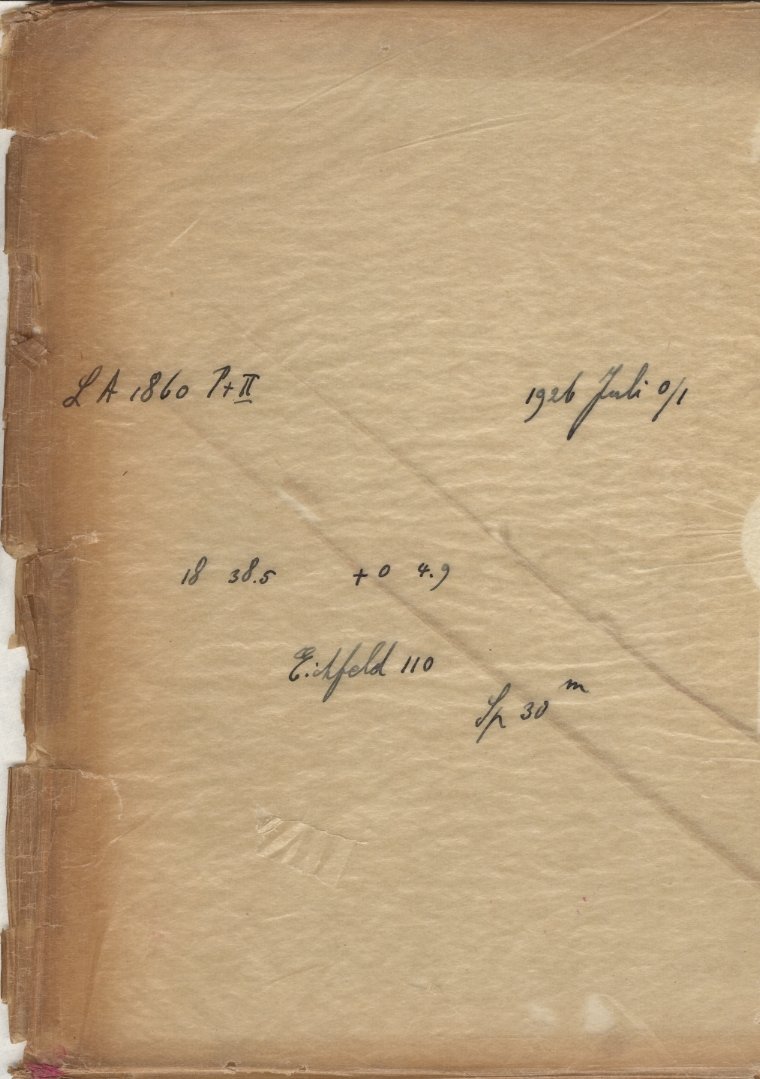 LA 1860 P+II 1926 Juli 0/1
18 38.5 +0 4.9
Eichfeld 110
Sp 30 m